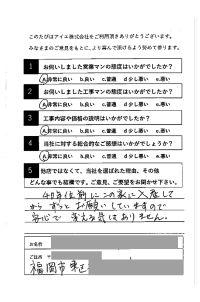 このたびはアイエ株式会社をご利用頂きありがとうございます。
みなさまのご意見をもとに、より高みを頂けるよう努めて参ります。
1 お伺いしました営業マンの態度はいかがでしたか？
a.非常に良い b.良い c.普通 d.少し悪い e.悪い
2 お伺いしました工事マンの態度はいかがでしたか？
a.非常に良い b.良い c.普通 d.少し悪い e.悪い
3 工事内容や価格の説明はいかがでしたか？
a.非常に良い b.良い c.普通 d.少し悪い e.悪い
4 当社に対する総合的なご感想はいかがでしょうか？
a.非常に良い b.良い c.普通 d.少し悪い e.悪い
5 他店ではなくて、当社を選ばれた理由、その他
どんな事でも結構です。ご意見、ご要望をお聞かせ下さい。
40年位前にこの家に入居して
からずっとお願いしていますので
安心で 変える気はありません。
お名前
ご住所
福岡市東区